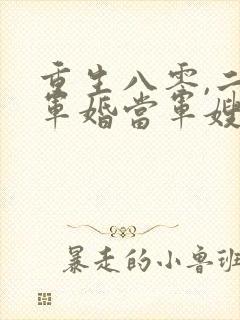 重生八零,二
军婚当军嫂
暴走的小鲁班